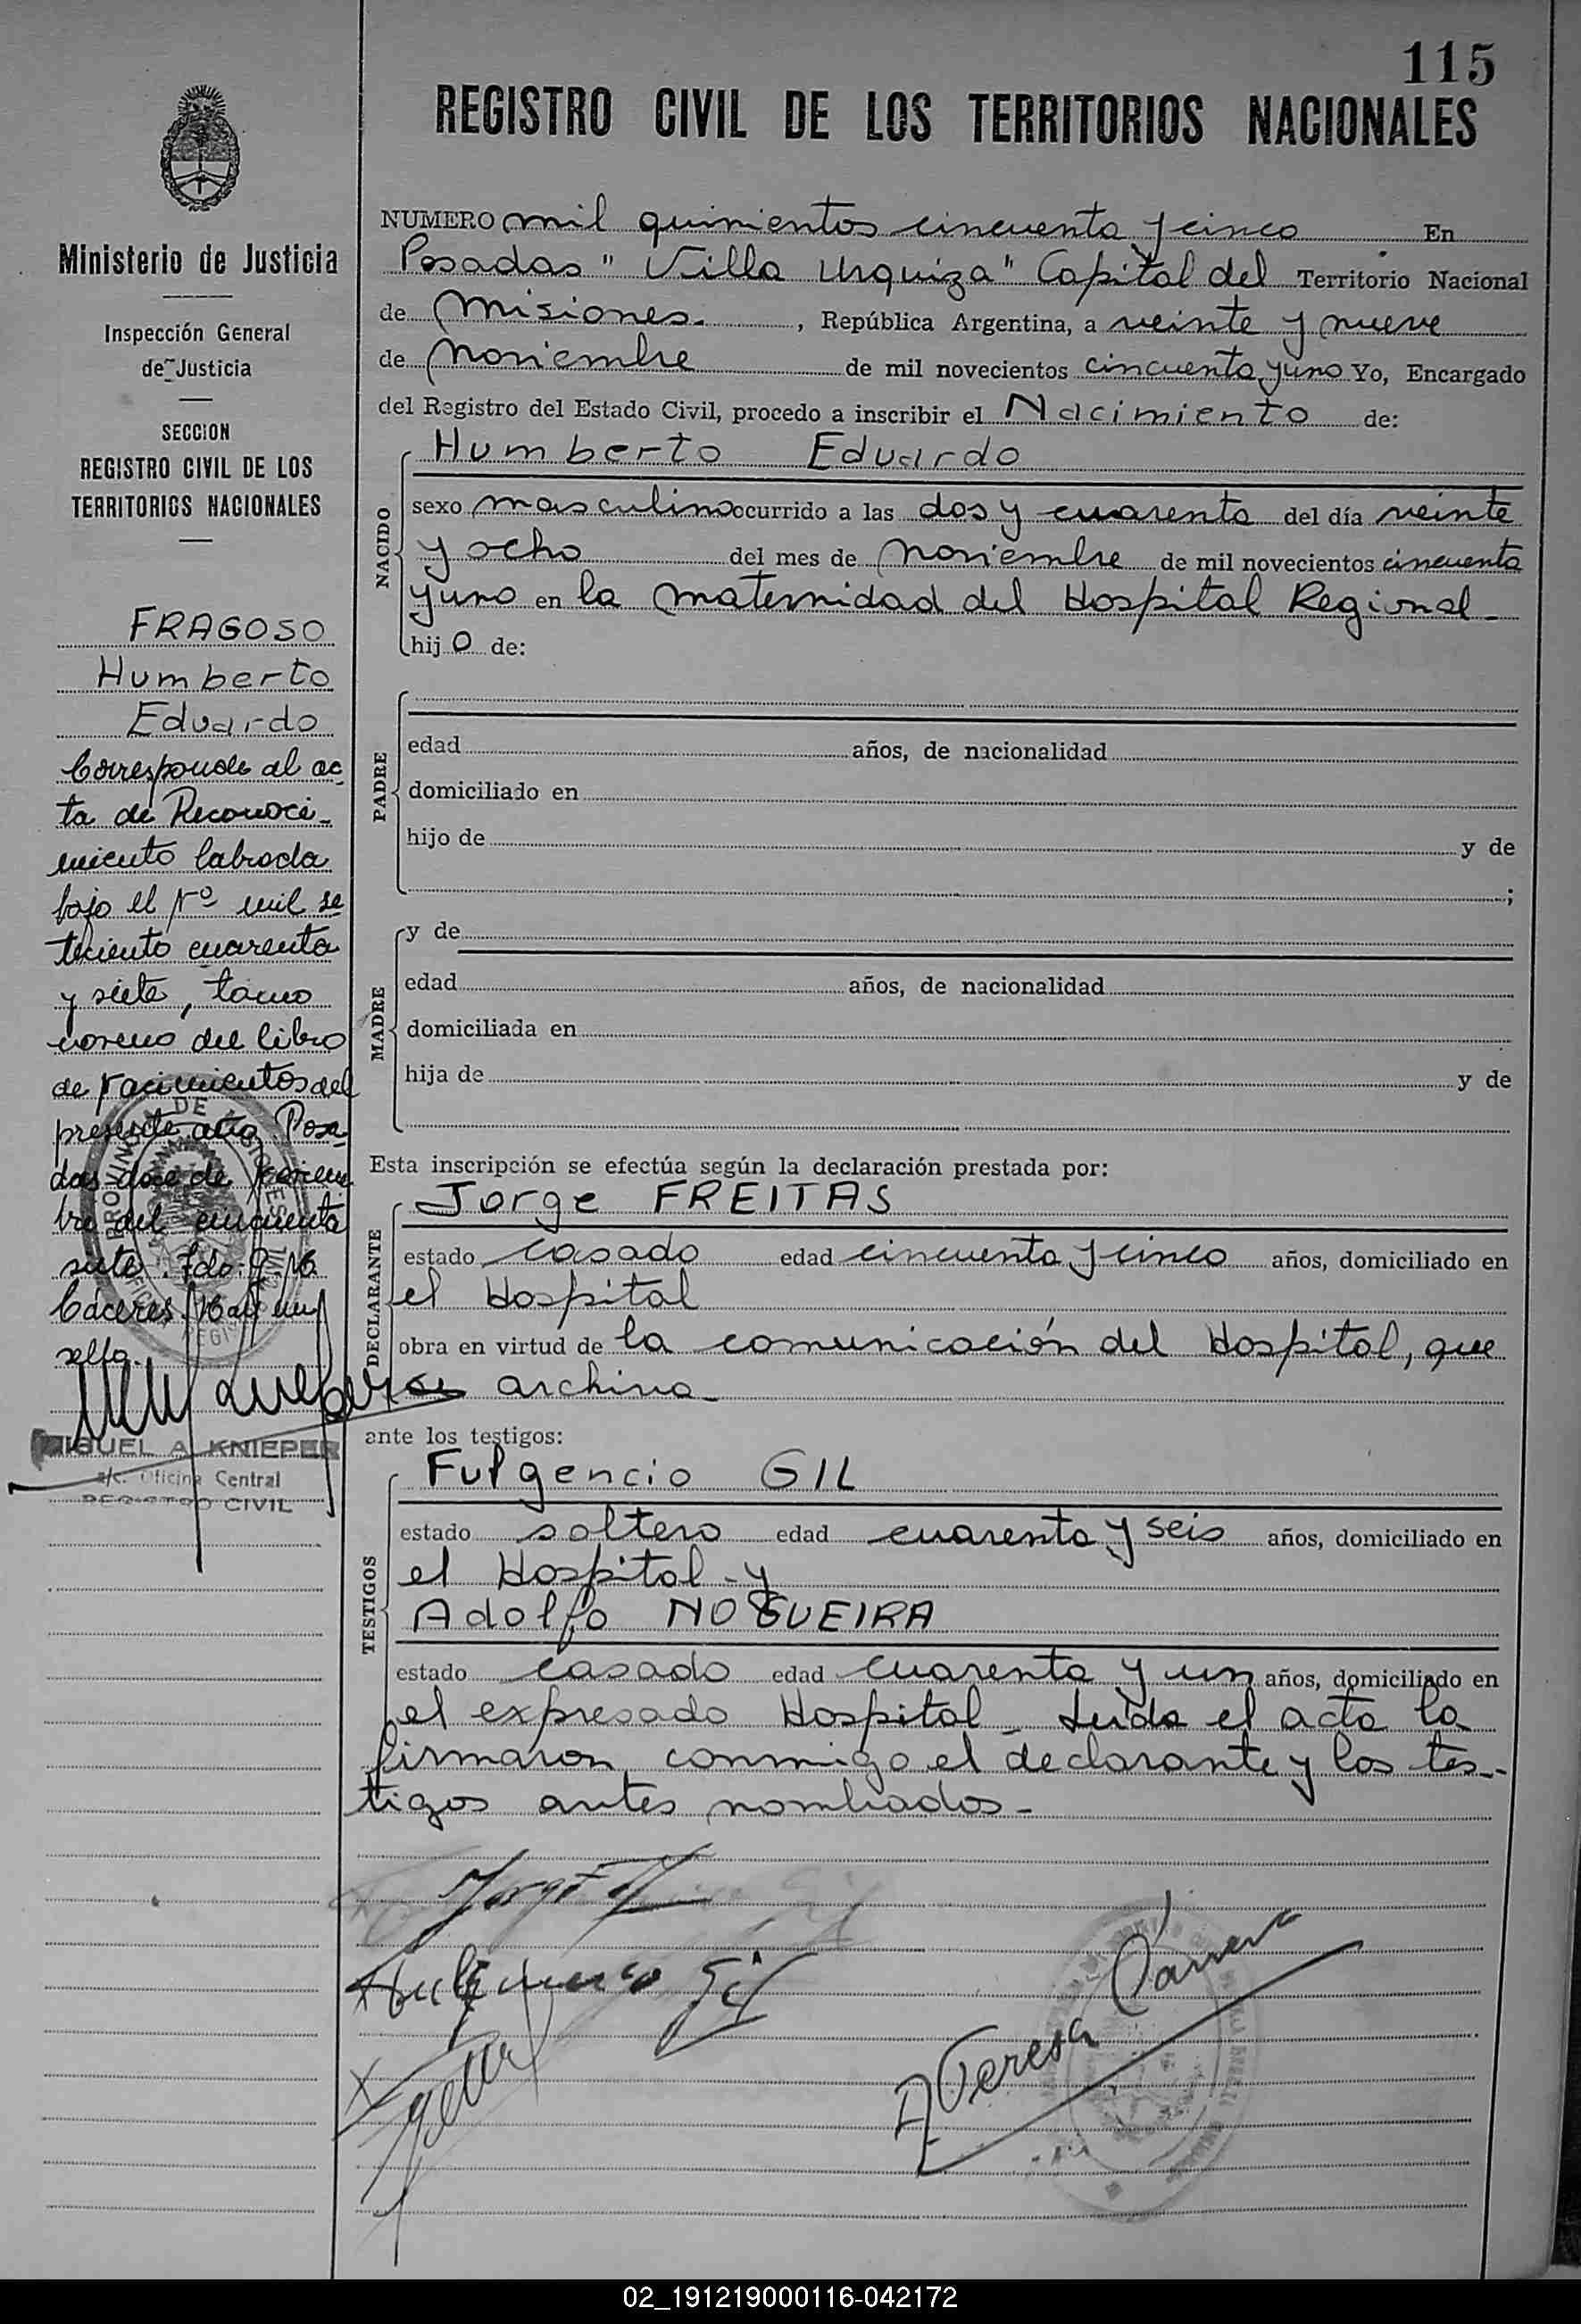 115
REGISTRO CIVIL DE LOS TERRITORIOS NACIONALES
Ministerio de Justicia
Inspección General
de Justicia
SECCION
REGISTRO CIVIL DE LOS
TERRITORIOS NACIONALES
FRAGOSO
Humberto
Eduardo
Corresponde al ac
ta de Reconoci-
miento labrada
bajo el Nº mil se
teciento cuarenta
y siete, tomo
noveno del libro
de nacimientos del
presente año. Posa
das doce de
bre del cincuenta
siete. Fdo: J. M.
Cáceres. Hay un
sello.
MIGUEL A. KNIEPER
a/c. Oficina Central
REGISTRO CIVIL
NUMERO mil quinientos cincuenta y cinco En
Posadas "Villa Urquiza" Capital del Territorio Nacional
de Misiones. , República Argentina, a veinte y nueve
de noviembre de mil novecientos cincuenta y uno Yo, Encargado
del Registro del Estado Civil, procedo a inscribir el Nacimiento de:
NACIDO
Humberto Eduardo
sexo masculino ocurrido a las dos y cuarenta del día veinte
y ocho del mes de noviembre de mil novecientos cincuenta
y uno en la maternidad del Hospital Regional-
hijo de:
PADRE
edad años, de nacionalidad
domiciliado en
hijo de y de
;
MADRE
y de
edad años, de nacionalidad
domiciliada en
hija de y de
Esta inscripción se efectúa según la declaración prestada por:
DECLARANTE
Jorge FREITAS
estado casado edad cincuenta y cinco años, domiciliado en
el Hospital
obra en virtud de la comunicación del Hospital, que
archivo-
ante los testigos:
TESTIGOS
Fulgencio GIL
estado soltero edad cuarenta y seis años, domiciliado en
el Hospital - y
Adolfo NOGUEIRA
estado casado edad cuarenta y un años, domiciliado en
el expresado Hospital - Leida el acta la
firmaron conmigo el declarante y los tes-
tigos antes nombrados-
Fulgencio Gil
02_191219000116-042172